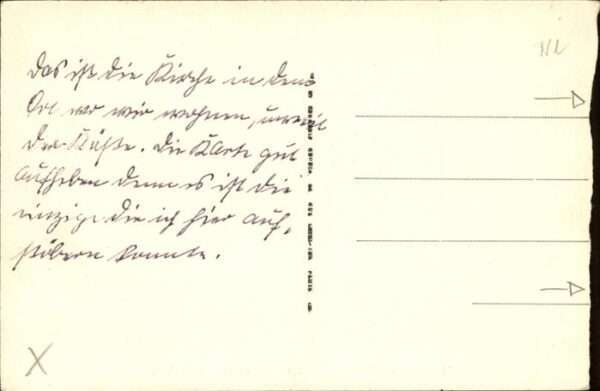 Das ist die Kirche in dem
Ort wo wir wohnen, unweit
der Küste. Die Karte gut
aufheben denn es ist die
einzige die ich hier auf-
stöbern konnte.
X